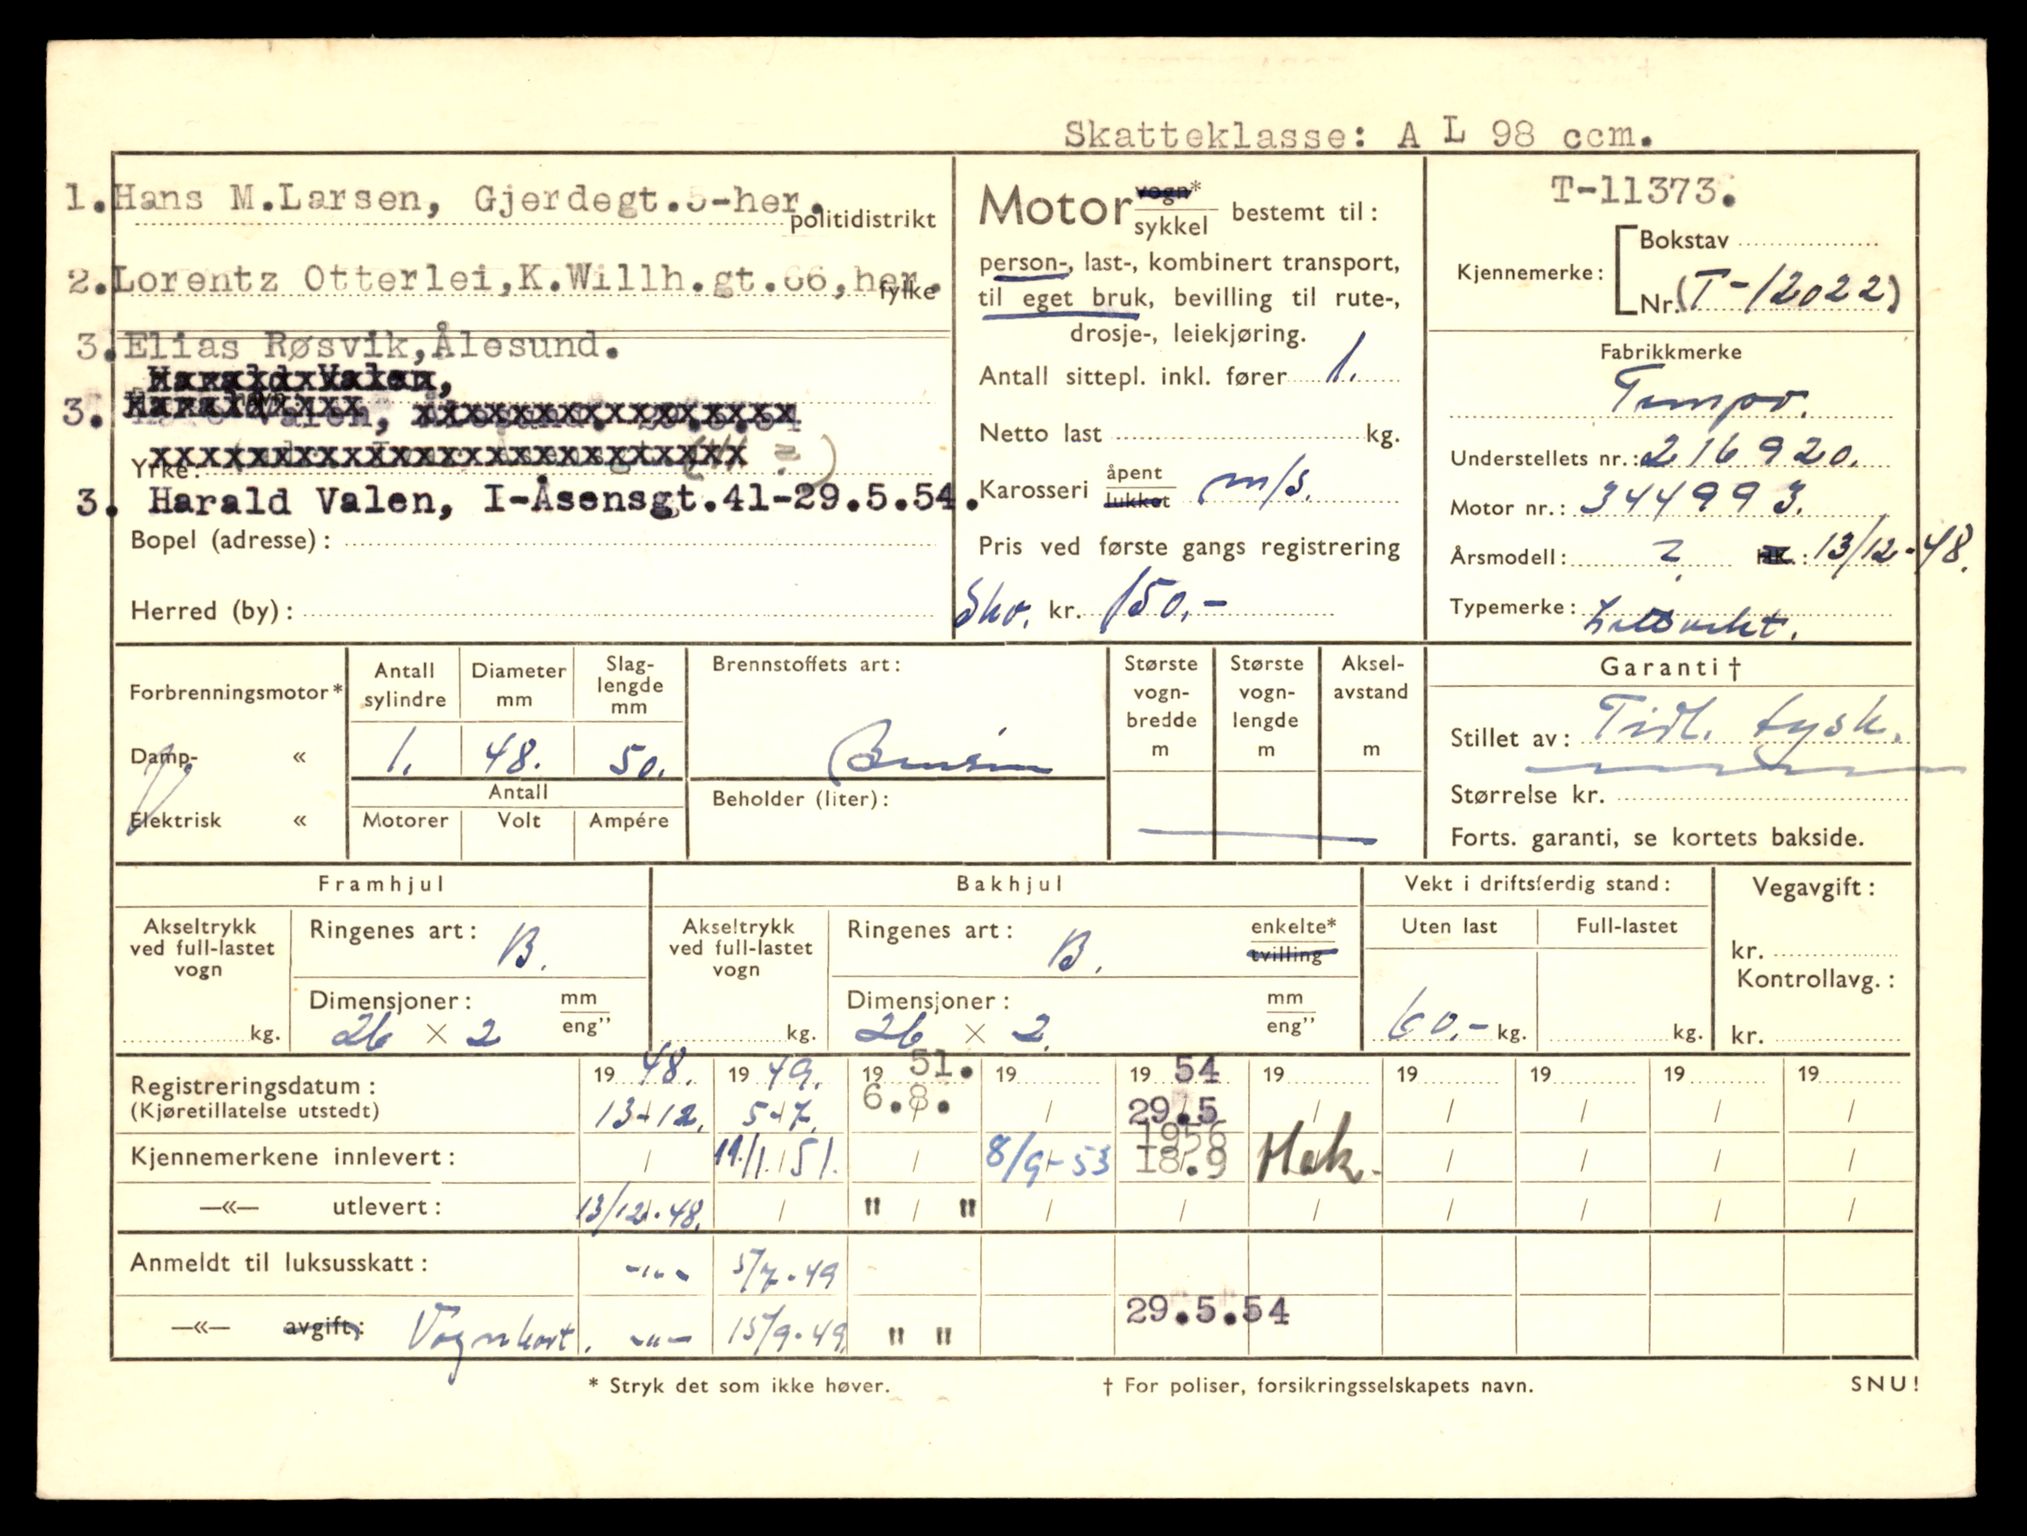 Skatteklasse: A L 98 ccm.
1. Hans M.Larsen, Gjerdegt.5-her.
politidistrikt
2. Lorentz Otterlei, K.Willh.gt.66, her.
fylke
3. Elias Røsvik, Ålesund.
Harald Valen,
3. Valen,
Yrke:
3. Harald Valen, I-Åsensgt.41-29.5.54.
Bopel (adresse):
Herred (by):
Motor vogn* / sykkel bestemt til:
person-, last-, kombinert transport,
til eget bruk, bevilling til rute-,
drosje-, leiekjøring.
Antall sittepl. inkl. fører 1.
Netto last kg.
Karosseri åpent / lukket m/s.
Pris ved første gangs registrering
Skv. kr. 150.-
T-11373.
Kjennemerke: Bokstav
Nr. (T-12022)
Fabrikkmerke
Tempo.
Understellets nr.: 216920.
Motor nr.: 344993.
Årsmodell: ? HK.: 13/12-48.
Typemerke: Lettvekt.
Forbrenningsmotor*
Damp- «
Elektrisk «
Antall sylindre
Diameter mm
Slag-lengde mm
1. 48. 50.
Antall
Motorer Volt Ampére
Brennstoffets art:
Bensin
Beholder (liter):
Største vogn-bredde m
Største vogn-lengde m
Aksel-avstand m
Garanti †
Stillet av: Tidl. tysk.
Størrelse kr.
Forts. garanti, se kortets bakside.
Framhjul
Akseltrykk ved full-lastet vogn
kg.
Ringenes art: B.
Dimensjoner: mm / eng”
26 × 2
Bakhjul
Akseltrykk ved full-lastet vogn
kg.
Ringenes art: B. enkelte* / tvilling
Dimensjoner: mm / eng”
26 × 2.
Vekt i driftsferdig stand:
Uten last Full-lastet
60.- kg. kg.
Vegavgift:
kr.
Kontrollavg.:
kr.
Registreringsdatum: 19 48. 19 49. 19 51. 19 19 54 19 19 19 19 19
(Kjøretillatelse utstedt) 13-12. 5-7. 6.8. / 29.5 / / / / /
Kjennemerkene innlevert: / 19./1. 51. / 8/9-53 1956 18.9 Hak. / / / /
—«— utlevert: 13/12.48. / " / " / / / / / / /
Anmeldt til luksusskatt: -"- 5/7.49
—«— avgift: Vognkort. -"- 15/9.49. " " 29.5.54
* Stryk det som ikke høver.
† For poliser, forsikringsselskapets navn.
SNU!